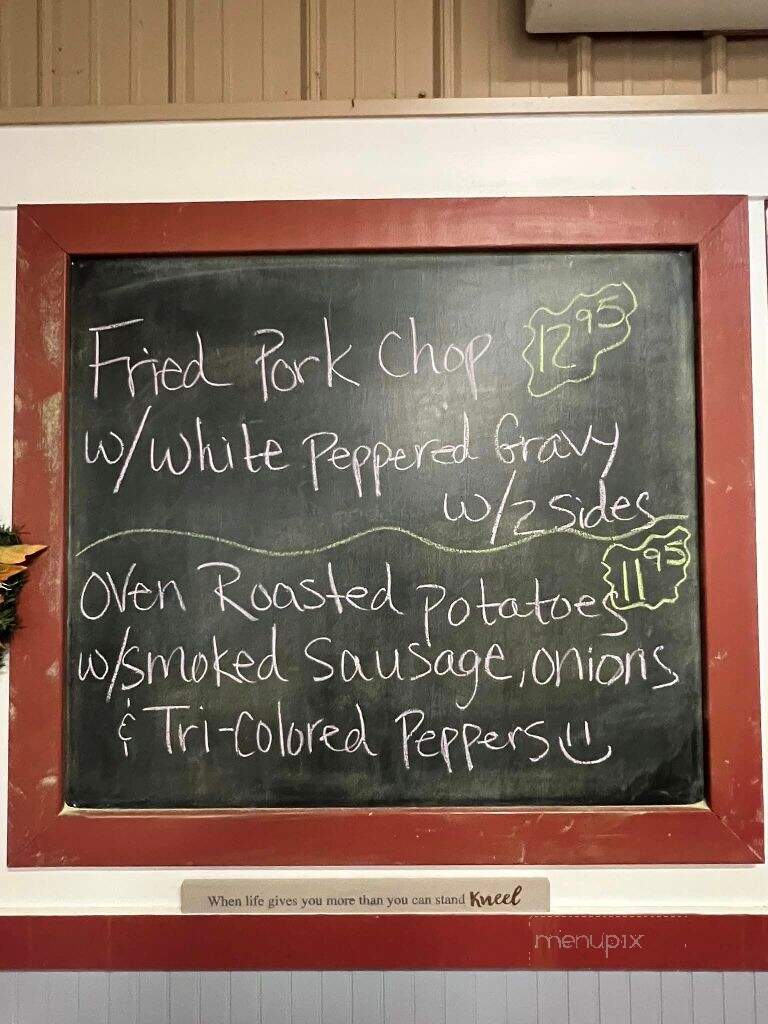 Fried Pork Chop 12 95
w/White Peppered Gravy
w/2 Sides
Oven Roasted Potatoes 11 95
w/Smoked Sausage, onions
& Tri-Colored Peppers
When life gives you more than you can stand Kneel
menupix